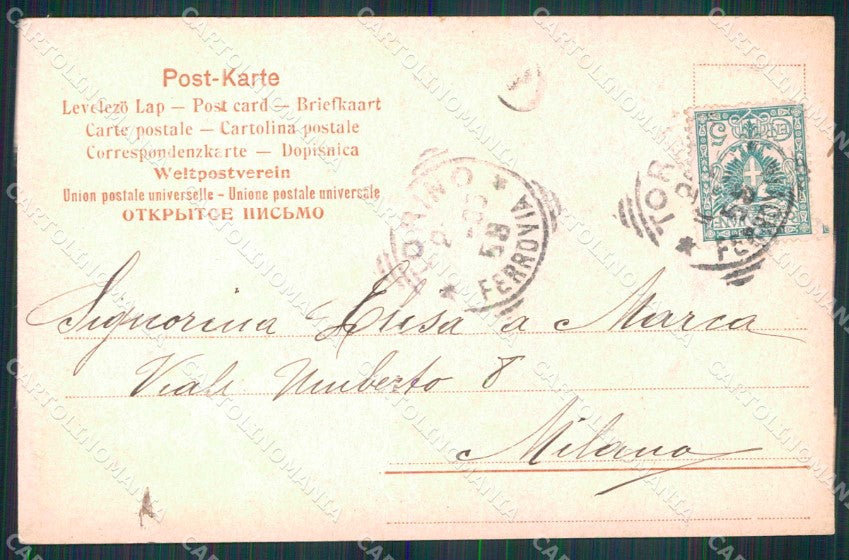 Post-Karte
Levelezö Lap — Post card — Briefkaart
Carte postale — Cartolina postale
Correspondenzkarte — Dopisnica
Weltpostverein
Union postale universelle - Unione postale universale
ОТКРЫТОЕ ПИСЬМО
TORINO
FERROVIA
58
TOR
FERRO
Signorina Elisa a Marca
Viale Umberto 8
Milano
CARTOLINOMANIA